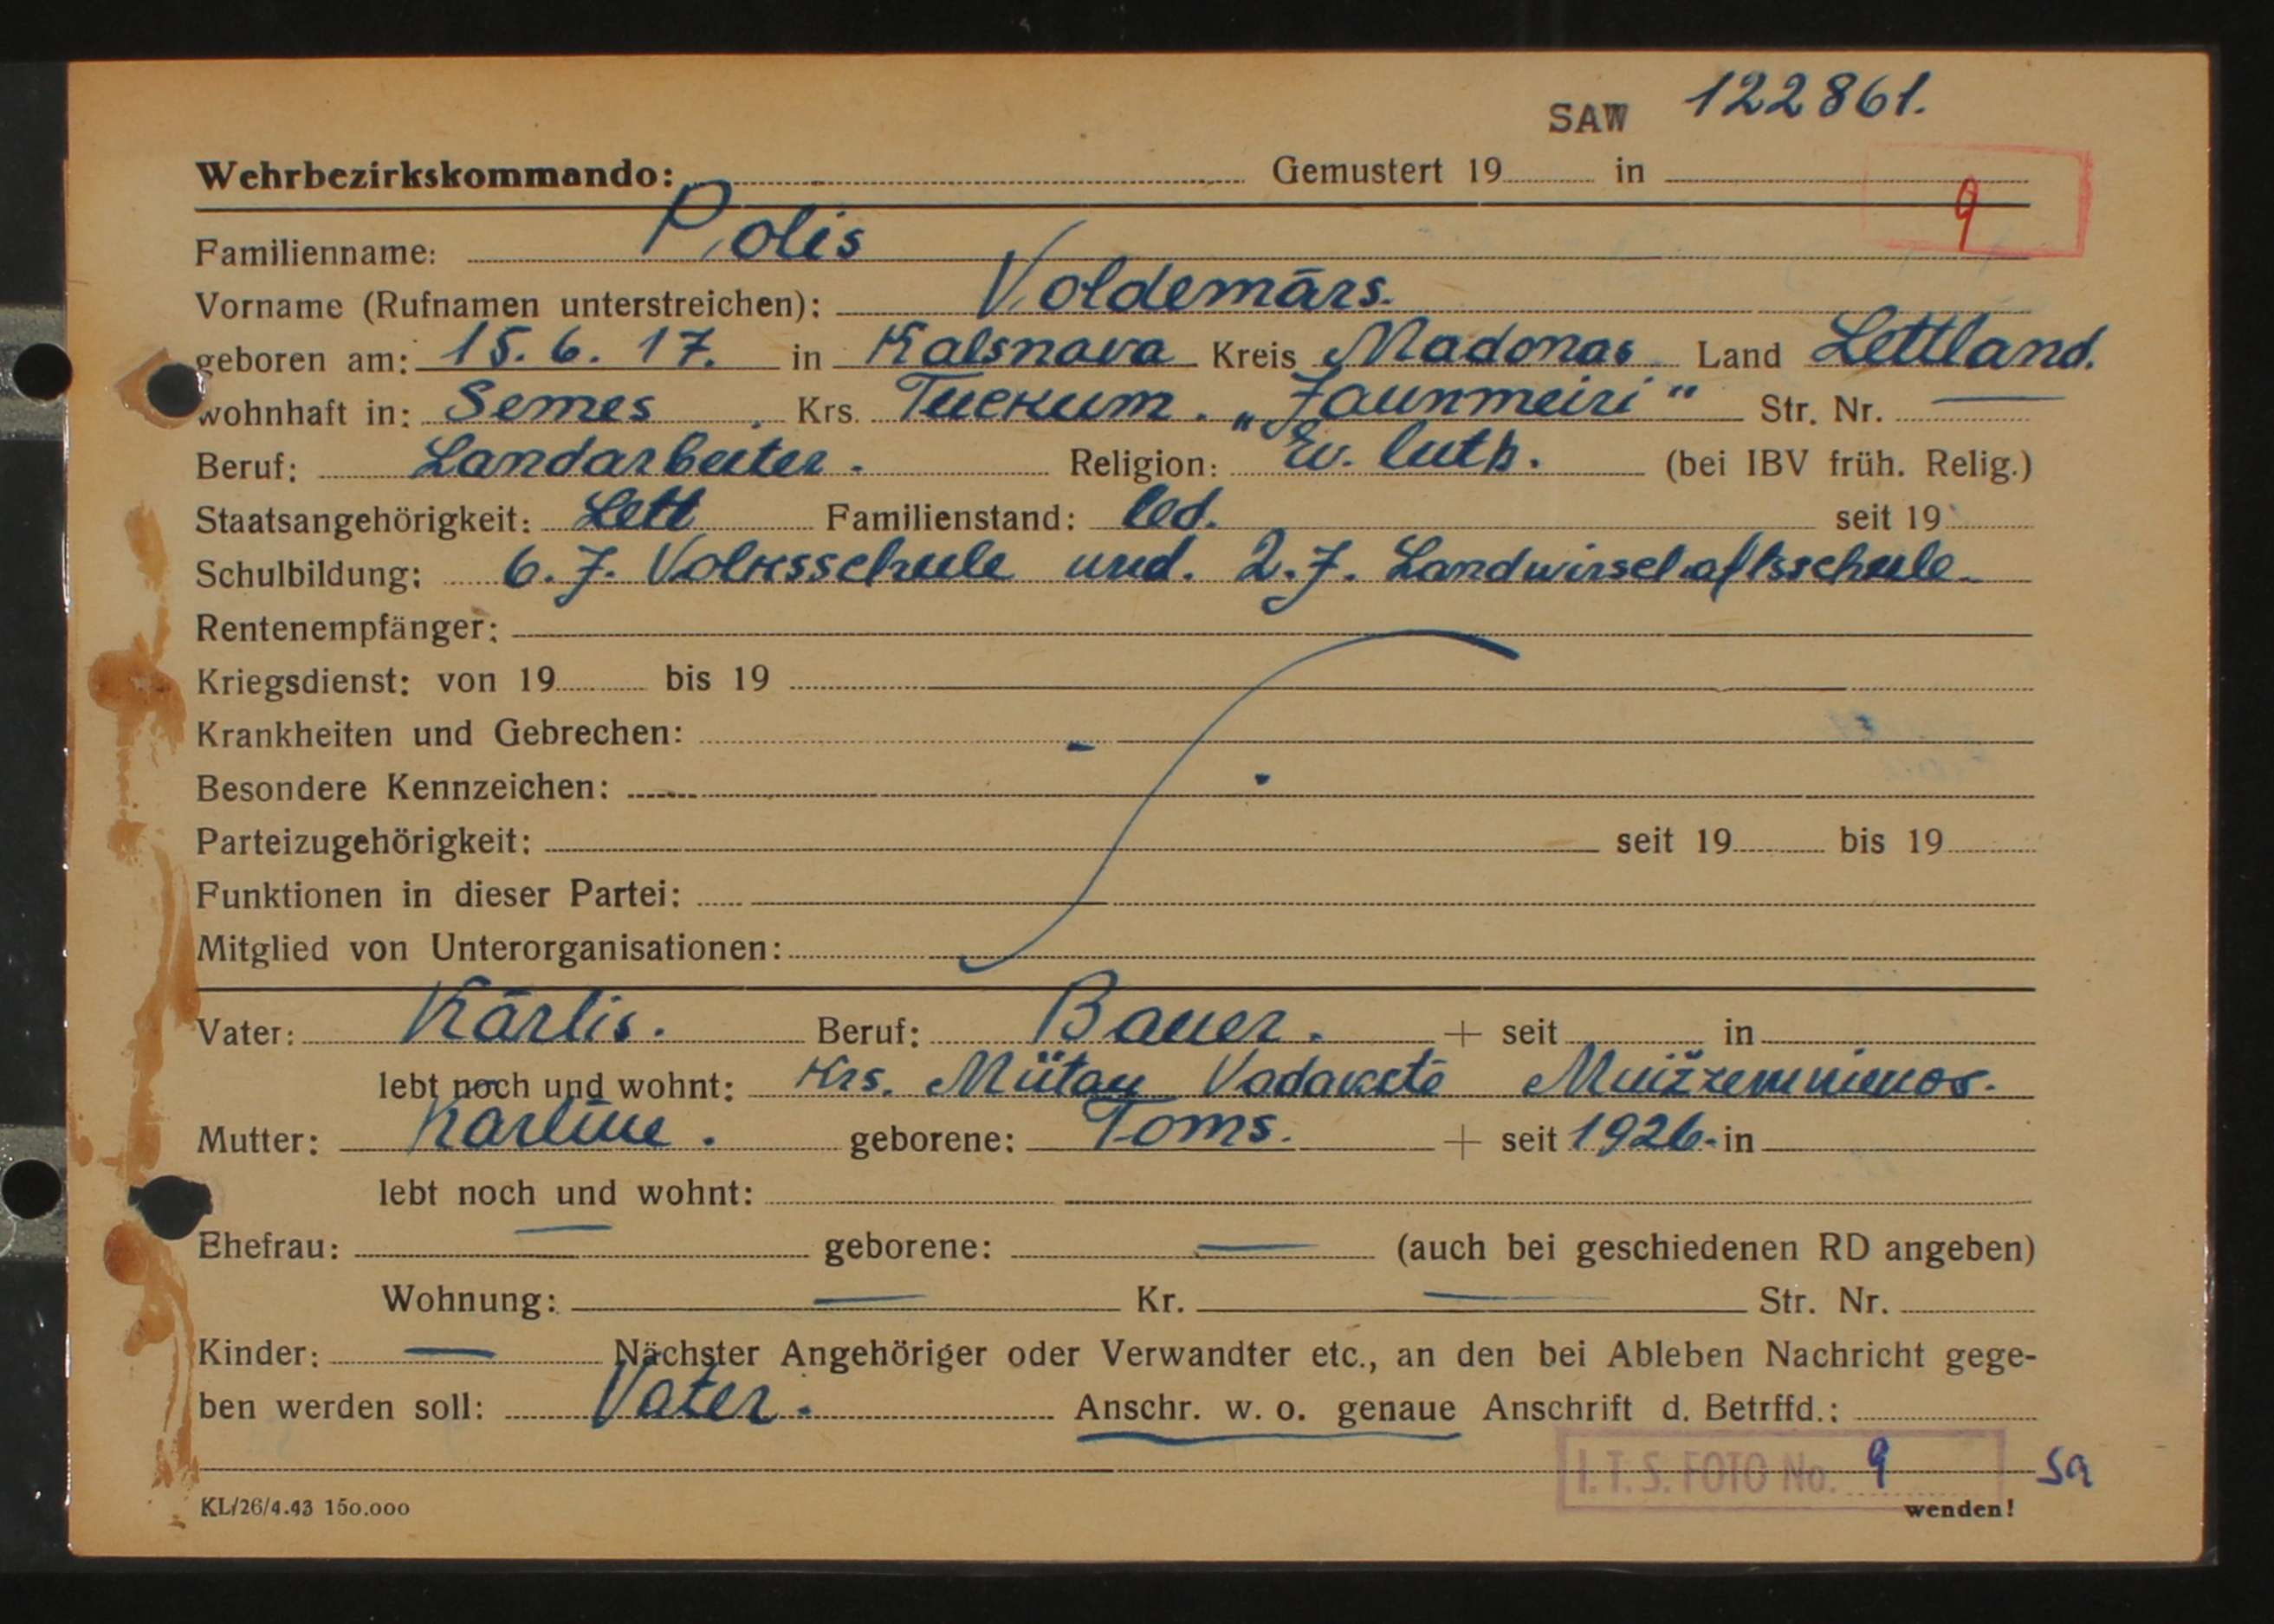 SAW 122861.
Wehrbezirkskommando: Gemustert 19 in
9
Familienname: Polis
Vorname (Rufnamen unterstreichen): Voldemārs.
geboren am: 15. 6. 17. in Kalsnava Kreis Madonas Land Lettland.
wohnhaft in: Semes Krs. Tuckum. „Jaunmeiri" Str. Nr. —
Beruf: Landarbeiter. Religion: Ev. luth. (bei IBV früh. Relig.)
Staatsangehörigkeit: Lett Familienstand: led. seit 19
Schulbildung: 6. J. Volksschule und. 2. J. Landwirschaftsschule.
Rentenempfänger:
Kriegsdienst: von 19 bis 19
Krankheiten und Gebrechen: -
Besondere Kennzeichen:
Parteizugehörigkeit: seit 19 bis 19
Funktionen in dieser Partei:
Mitglied von Unterorganisationen:
Vater: Kārlis. Beruf: Bauer. + seit in
lebt noch und wohnt: Krs. Mütau
Mutter: Karline. geborene: Toms. + seit 1926. in
lebt noch und wohnt:
Ehefrau: — geborene: — (auch bei geschiedenen RD angeben)
Wohnung: — Kr. — Str. Nr.
Kinder: — Nächster Angehöriger oder Verwandter etc., an den bei Ableben Nachricht gege-
ben werden soll: Vater. Anschr. w. o. genaue Anschrift d. Betrffd.:
I.T.S. FOTO No. 9 Sa
KL/26/4.43 150.000 wenden!